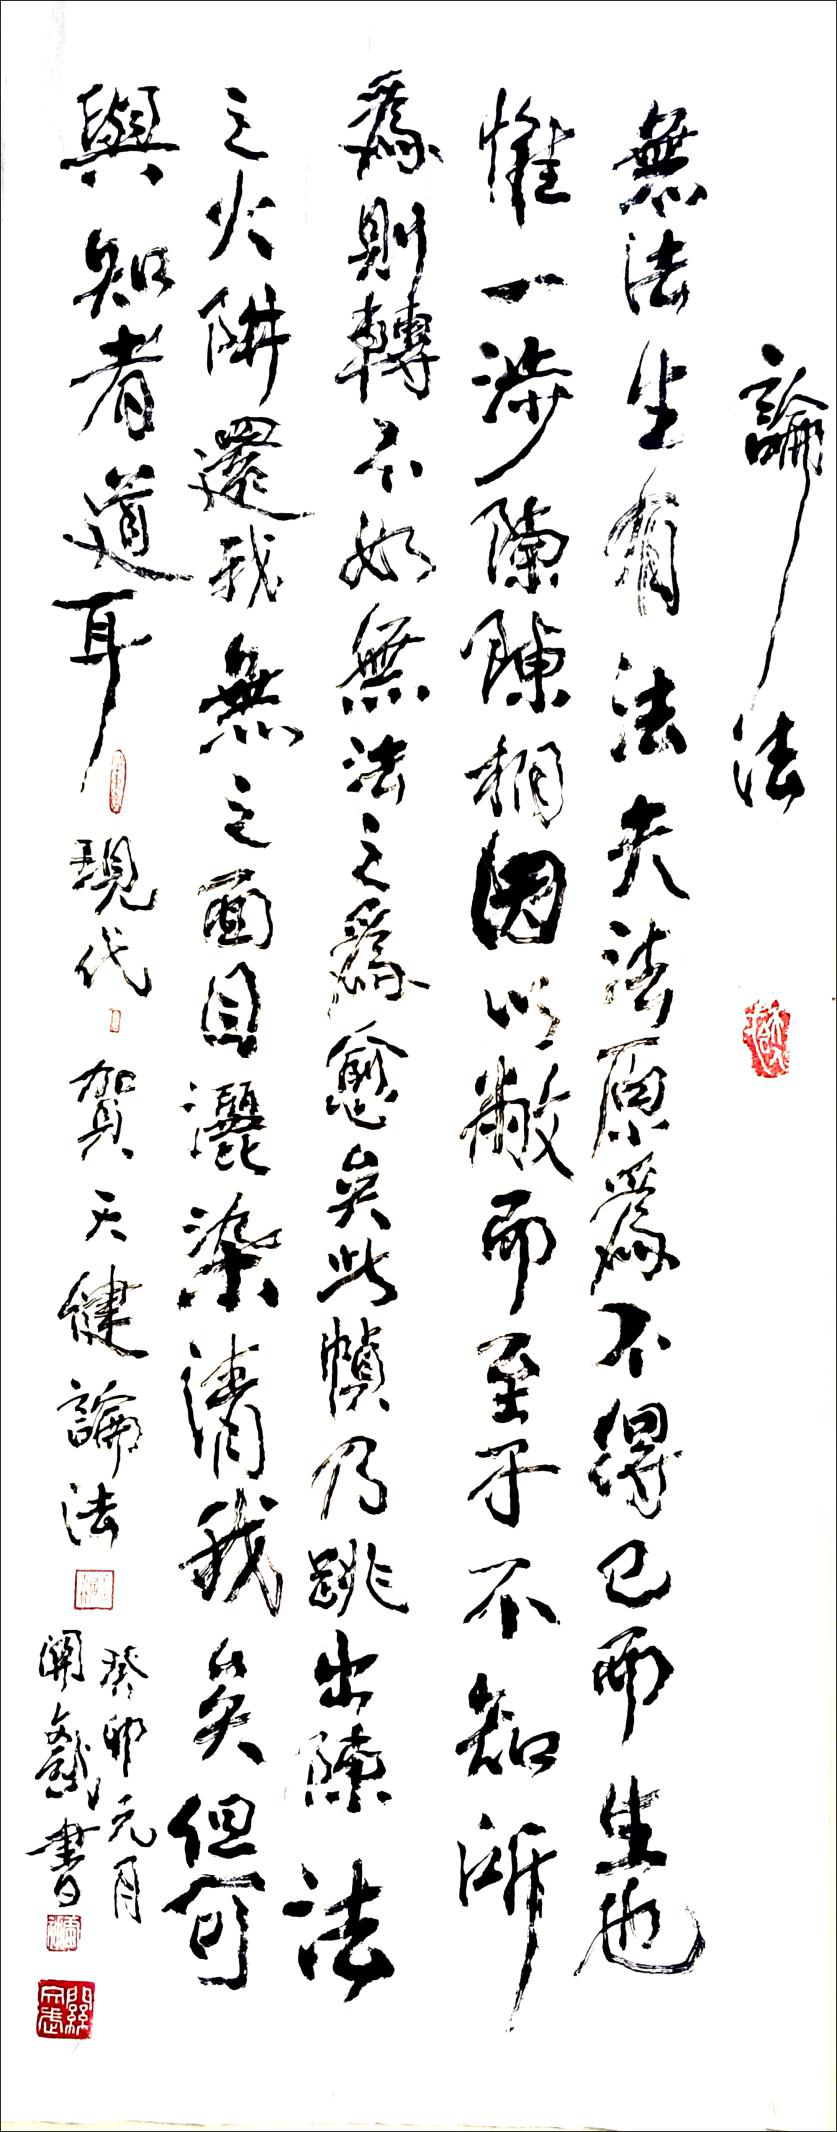 論法
無法生有法夫法原為不得已而生也
惟一涉陳陳相因以敝而至于不知所
為則轉不如無法之為愈矣此幀乃跳出陳法
之火阱還我無之面目灑染清我矣但可
與知者道耳
現代賀天健論法
癸卯元月
開戲書